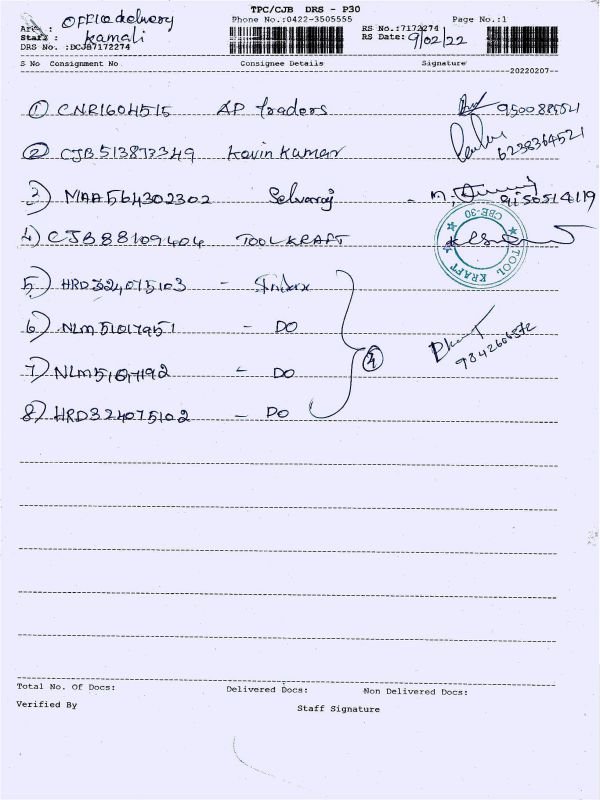 TPC/CJB DRS - P30
Phone No.:0422-3505555 Page No.:1
Area : Office delivery
RS No.:7172274
Staff : Kamali
RS Date: 9/02/22
DRS No. :DCJB7172274
S No Consignment No Consignee Details Signature
20220207
1) CNR1604515 AP Traders 9500885521
2) CJB513877349 Kavin Kumar 6238364521
3) MAA564302302 Selvaraj - 9150514119
4) CJB88109404 TOOLKRAFT
TOOL KRAFT CBE-30
5) HRD324075103 -
6) NLM51017951 - DO
4
9842606572
7) NLM51017192 - DO
8) HRD324075102 - DO
Total No. Of Docs: Delivered Docs: Non Delivered Docs:
Verified By Staff Signature